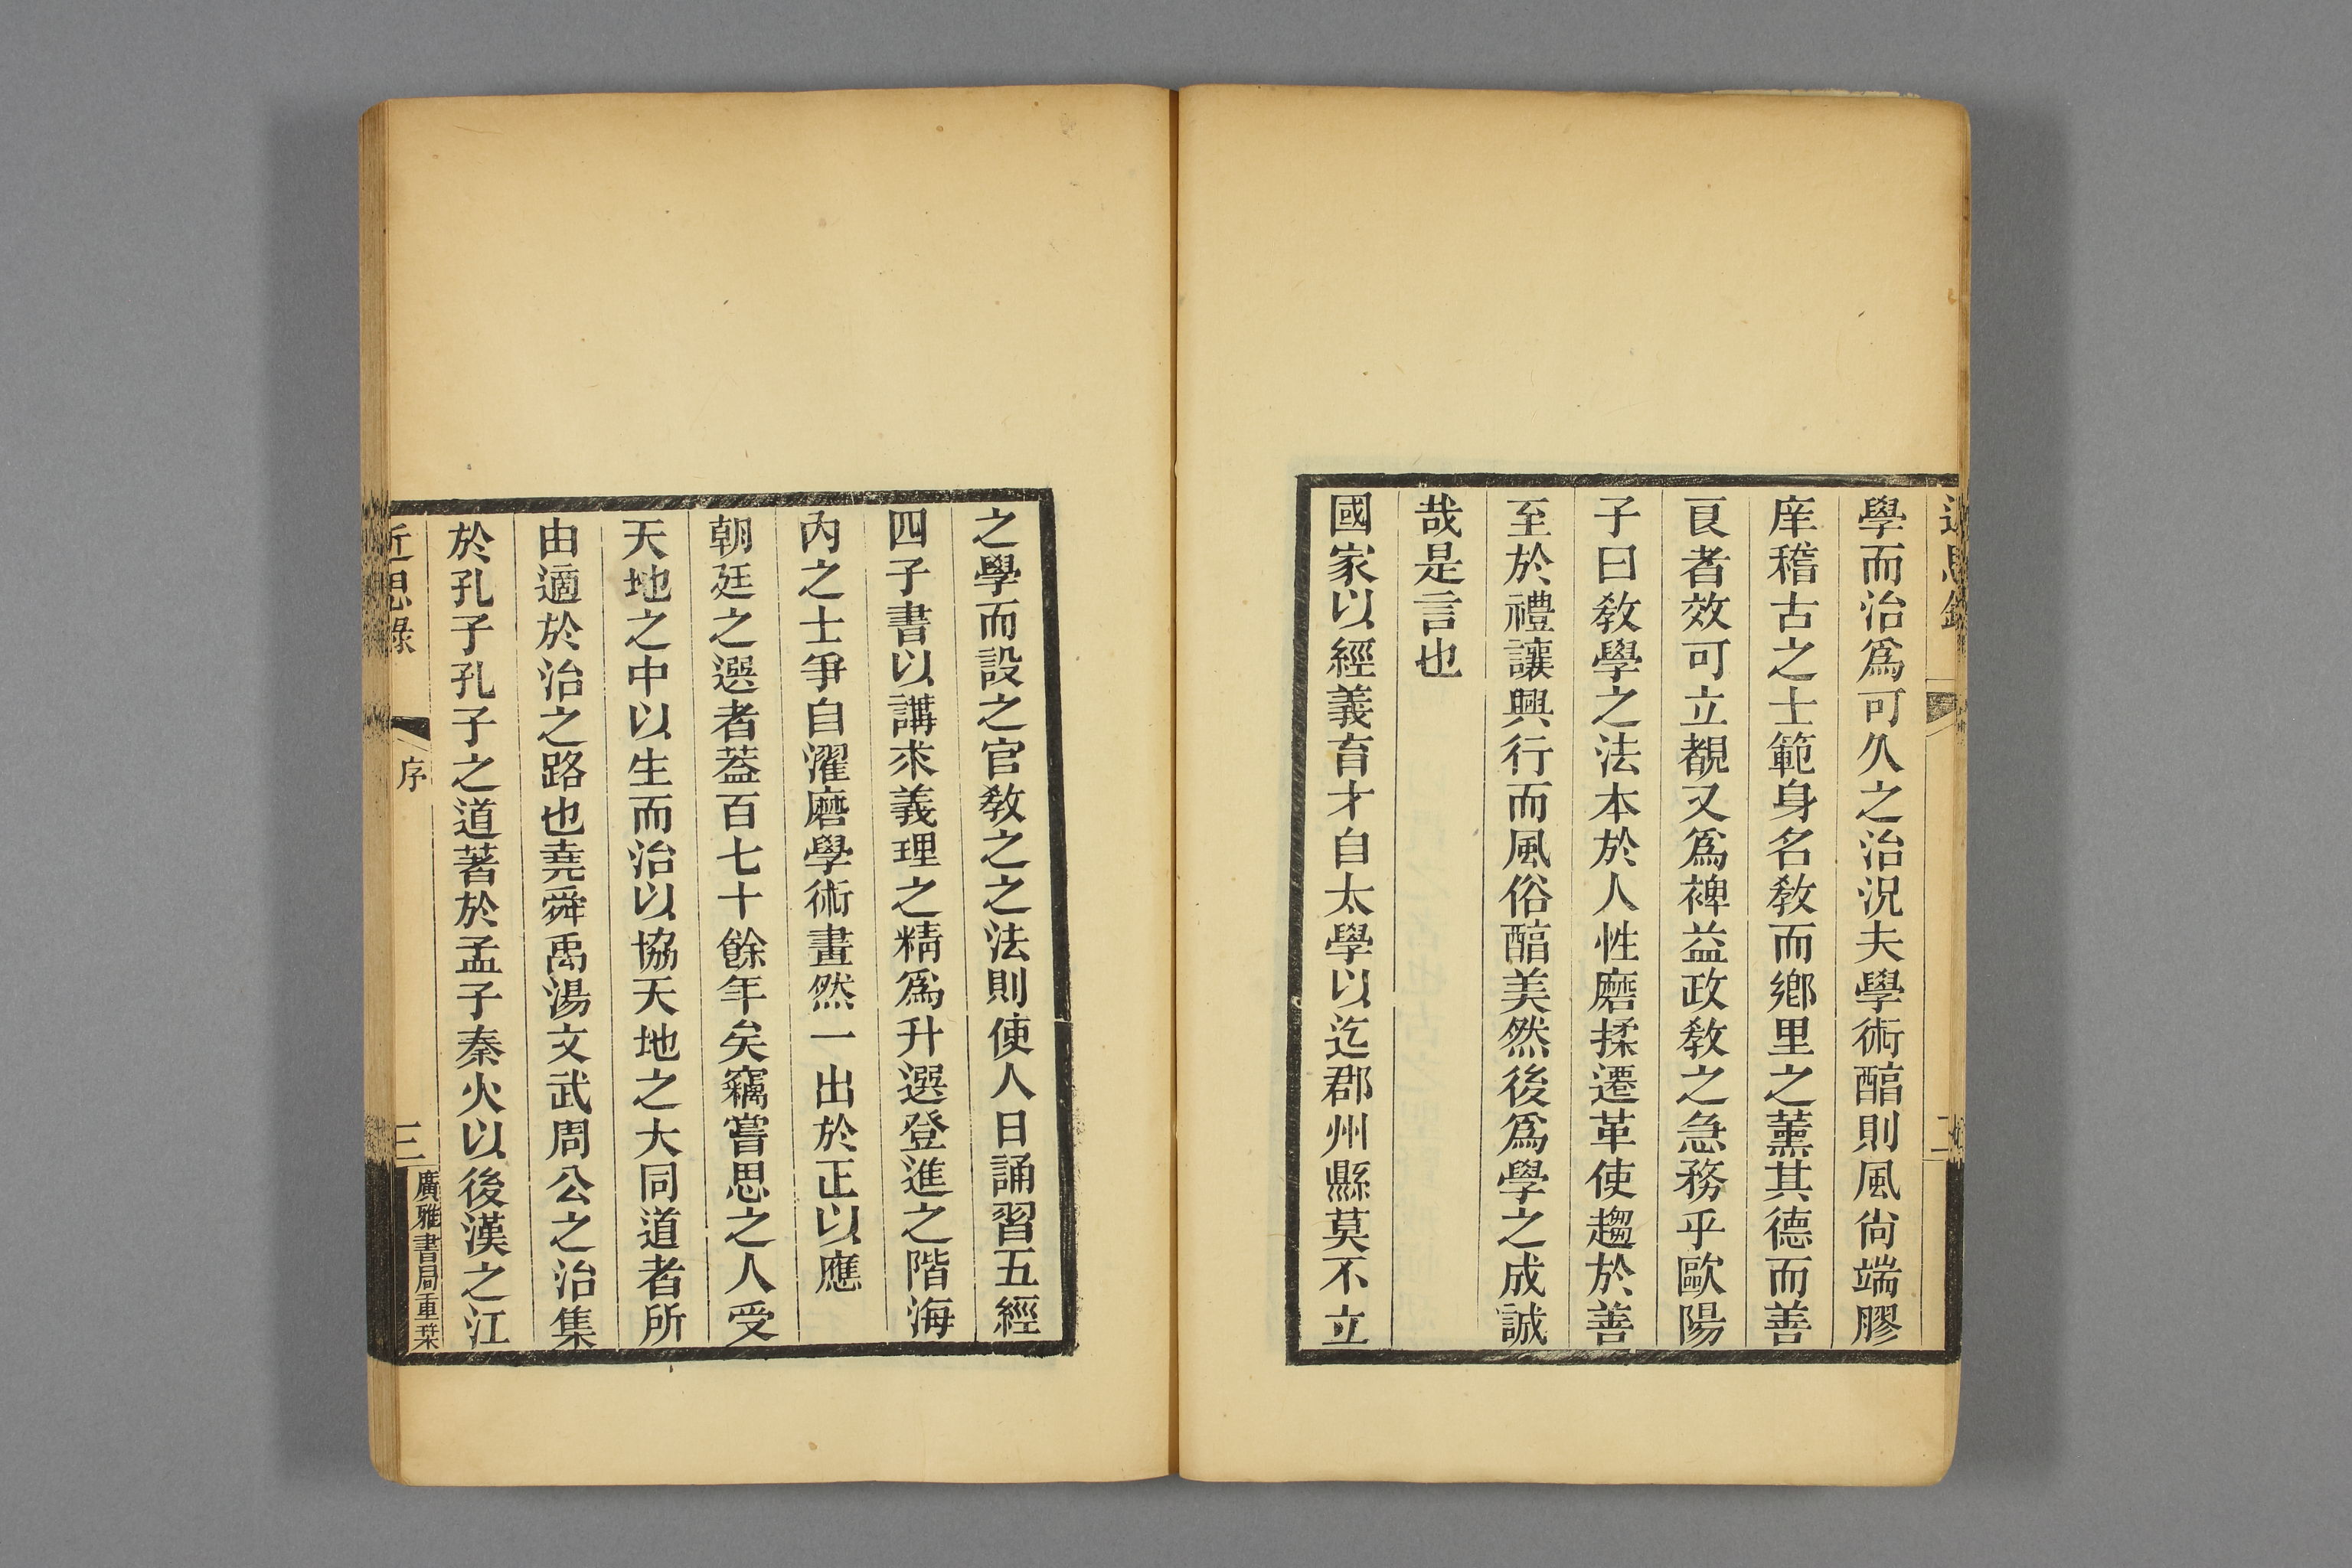 近思錄
二
學而治爲可久之治況夫學術醕則風尙端膠
庠稽古之士範身名敎而鄕里之薰其德而善
良者效可立覩又爲裨益政敎之急務乎歐陽
子曰敎學之法本於人性磨揉遷革使趨於善
至於禮讓興行而風俗醕美然後爲學之成誠
哉是言也
國家以經義育才自太學以迄郡州縣莫不立
之學而設之官敎之之法則使人日誦習五經
四子書以講求義理之精爲升選登進之階海
內之士爭自濯磨學術晝然一出於正以應
朝廷之選者葢百七十餘年矣竊嘗思之人受
天地之中以生而治以協天地之大同道者所
由適於治之路也堯舜禹湯文武周公之治集
於孔子孔子之道著於孟子秦火以後漢之江
近思錄
序
三
廣雅書局重栞